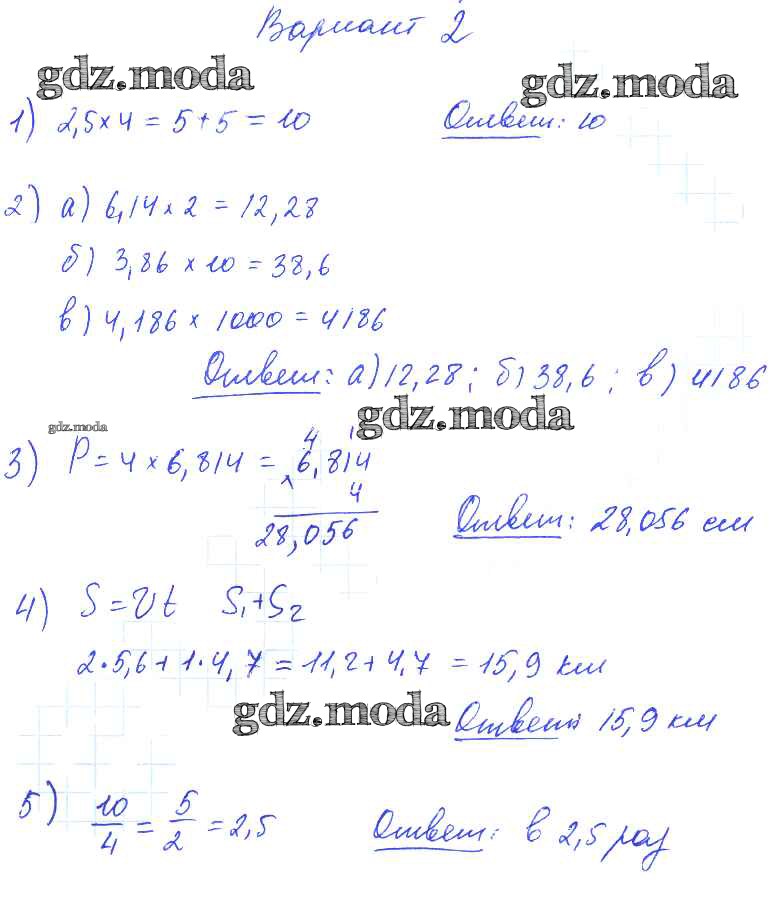 Вариант 2
gdz.moda gdz.moda
1) 2,5 × 4 = 5 + 5 = 10 Ответ: 10
2) а) 6,14 × 2 = 12,28
б) 3,86 × 10 = 38,6
в) 4,186 × 1000 = 4186
Ответ: а) 12,28; б) 38,6; в) 4186
gdz.moda gdz.moda
4 1
3) P = 4 × 6,814 = × 6,814
4
28,056 Ответ: 28,056 см
4) S = Vt S₁+S₂
2·5,6 + 1·4,7 = 11,2 + 4,7 = 15,9 км
gdz.moda Ответ: 15,9 км
5) 10/4 = 5/2 = 2,5 Ответ: в 2,5 раз